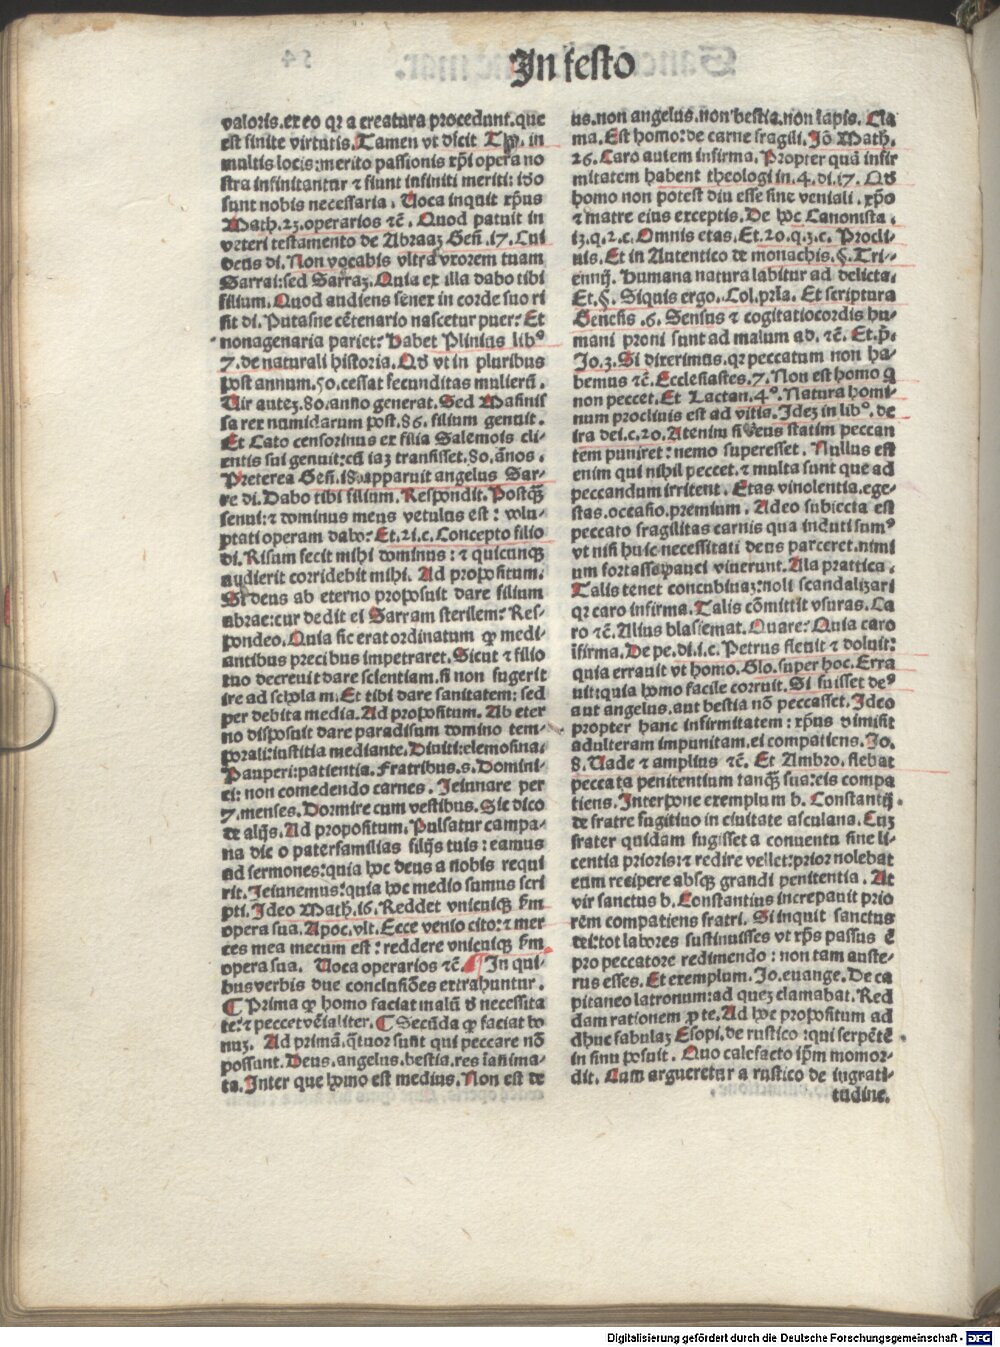 In festo
valoris. ex eo qꝛ a creatura procedunt. que
est finite virtutis. Tamen vt dicit Tho. in
multis locis: merito passionis xp̄i opera no
stra infinitantur ⁊ fiunt infiniti meriti: ido
sunt nobis necessaria. Uoca inquit xp̄us
Math. 23. operarios ⁊c̄. Quod patuit in
veteri testamento de Abraaz Geñ. 17. Cui
deus di. Non vocabis vltra vxorem tuam
Sarrai: sed Sarraz. Quia ex illa dabo tibi
filium. Quod audiens senex in corde suo ri
sit di. Putasne cētenario nascetur puer: Et
nonagenaria pariet: Habet Plinius libº
7. de naturali historia. Qd vt in pluribus
post annum. 50. cessat fecunditas mulierū.
Uir autez. 80. anno generat. Sed Masinis
sa rex numidarum post. 86. filium genuit.
Et Cato censorinus ex filia Salemois cli-
entis sui genuit: cū iaz transisset. 80. ānos.
Preterea Geñ. 18. apparuit angelus Sar-
re di. Dabo tibi filium. Respondit. Postq̄ꝫ
senui: ⁊ dominus meus vetulus est: volu-
ptati operam dabo: Et. 21. c. Concepto filio
di. Risum fecit mihi dominus: ⁊ quicunqꝫ
audierit corridebit mihi. Ad propositum.
Si deus ab eterno proposuit dare filium
abrae: cur dedit ei Sarram sterilem: Res-
pondeo. Quia sic erat ordinatum ꝙ medi-
antibus precibus impetraret. Sicut ⁊ filio
tuo decreuit dare scientiam. si non fugerit
ire ad scholam. Et tibi dare sanitatem: sed
per debita media. Ad propositum. Ab eter
no disposuit dare paradisum domino tem-
porali: iustitia mediante. Diuiti: elemosina.
Pauperi: patientia. Fratribus. s. Domini-
ci: non comedendo carnes. Jeiunare per
7. menses. Dormire cum vestibus. Sic dico
de alijs. Ad propositum. Pulsatur campa-
na dic o paterfamilias filijs tuis: eamus
ad sermones: quia hoc deus a nobis requi
rit. Jeiunemus: quia hoc medio sumus scri
pti. Ideo Math. 16. Reddet vnicuiqꝫ s̄m
opera sua. Apoc. vlt. Ecce venio cito: ⁊ mer
ces mea mecum est: reddere vnicuiqꝫ s̄m
opera sua. Uoca operarios ⁊c̄. ¶ In qui-
bus verbis due conclusiōes extrahuntur.
¶ Prima ꝙ homo faciat malū d necessita
te: ⁊ peccet vēialiter. ¶ Secūda ꝙ faciat bo
nuz. Ad primā. q̄tuor sunt qui peccare nō
possunt. Deus. angelus. bestia. res īanima-
ta. Inter que homo est medius. Non est de
us. non angelus. non bestia. non lapis. Cla
ma. Est homo: de carne fragili. Jō Math.
26. Caro autem infirma. Propter quā infir
mitatem habent theologi in. 4. di. 17. Qd
homo non potest diu esse sine veniali. xp̄o
⁊ matre eius exceptis. De hoc Canonista.
13. q. 2. c. Omnis etas. Et. 20. q. 3. c. Procli-
uis. Et in Autentico de monachis. §. Tri-
ennij. Humana natura labitur ad delicta.
Et. §. Siquis ergo. Col. pꝛla. Et scriptura
Genesis. 6. Sensus ⁊ cogitatio cordis hu-
mani proni sunt ad malum ad. ⁊c̄. Et. p̄.
Jo. 3. Si dixerimus. qꝛ peccatum non ha-
bemus ⁊c̄. Ecclesiastes. 7. Non est homo q
non peccet. Et Lactan. 4º. Natura homi-
num procliuis est ad vitia. Idez in libº. de
ira dei. c. 20. Atenim si deus statim peccan
tem puniret: nemo superesset. Nullus est
enim qui nihil peccet. ⁊ multa sunt que ad
peccandum irritent. Etas vinolentia. ege-
stas. occasio. premium. Adeo subiecta est
peccato fragilitas carnis qua induti sumꝰ
vt nisi huic necessitati deus parceret. nimi
um fortasse pauci viuerent. Ala prattica.
Talis tenet concubinaz: noli scandalizari
qꝛ caro infirma. Talis cōmittit vsuras. Ca
ro ⁊c̄. Alius blasfemat. Quare: Quia caro
īfirma. De pe. di. i. c. Petrus fleuit ⁊ doluit:
quia errauit vt homo. Glo. super hoc. Erra
uit: quia homo facile corruit. Si fuisset deꝰ
aut angelus. aut bestia nō peccasset. Ideo
propter hanc infirmitatem: xp̄us dimisit
adulteram impunitam. ei compatiens. Jo.
8. Uade ⁊ amplius ⁊c̄. Et Ambro. flebat
peccata penitentium tanq̄ꝫ sua: eis compa
tiens. Interpone exemplum b. Constantij.
de fratre fugitiuo in ciuitate asculana. Cuz
frater quidam fugisset a conuentu sine li-
centia prioris: ⁊ redire vellet: prior nolebat
eum recipere absqꝫ grandi penitentia. At
vir sanctus b. Constantius increpauit prio
rem compatiens fratri. Si inquit sanctus
dei: tot labores sustinuisses vt xp̄s passus ē
pro peccatore redimendo: non tam auste-
rus esses. Et exemplum. Jo. euange. De ca
pitaneo latronum: ad quez clamabat. Red
dam rationem ꝓ te. Ad hoc propositum ad
dhuc fabulaz Esopi. de rustico: qui serpētē
in sinu posuit. Quo calefacto ip̄m momor-
dit. Cum argueretur a rustico de ingrati-
tudine.
Digitalisierung gefördert durch die Deutsche Forschungsgemeinschaft - DFG